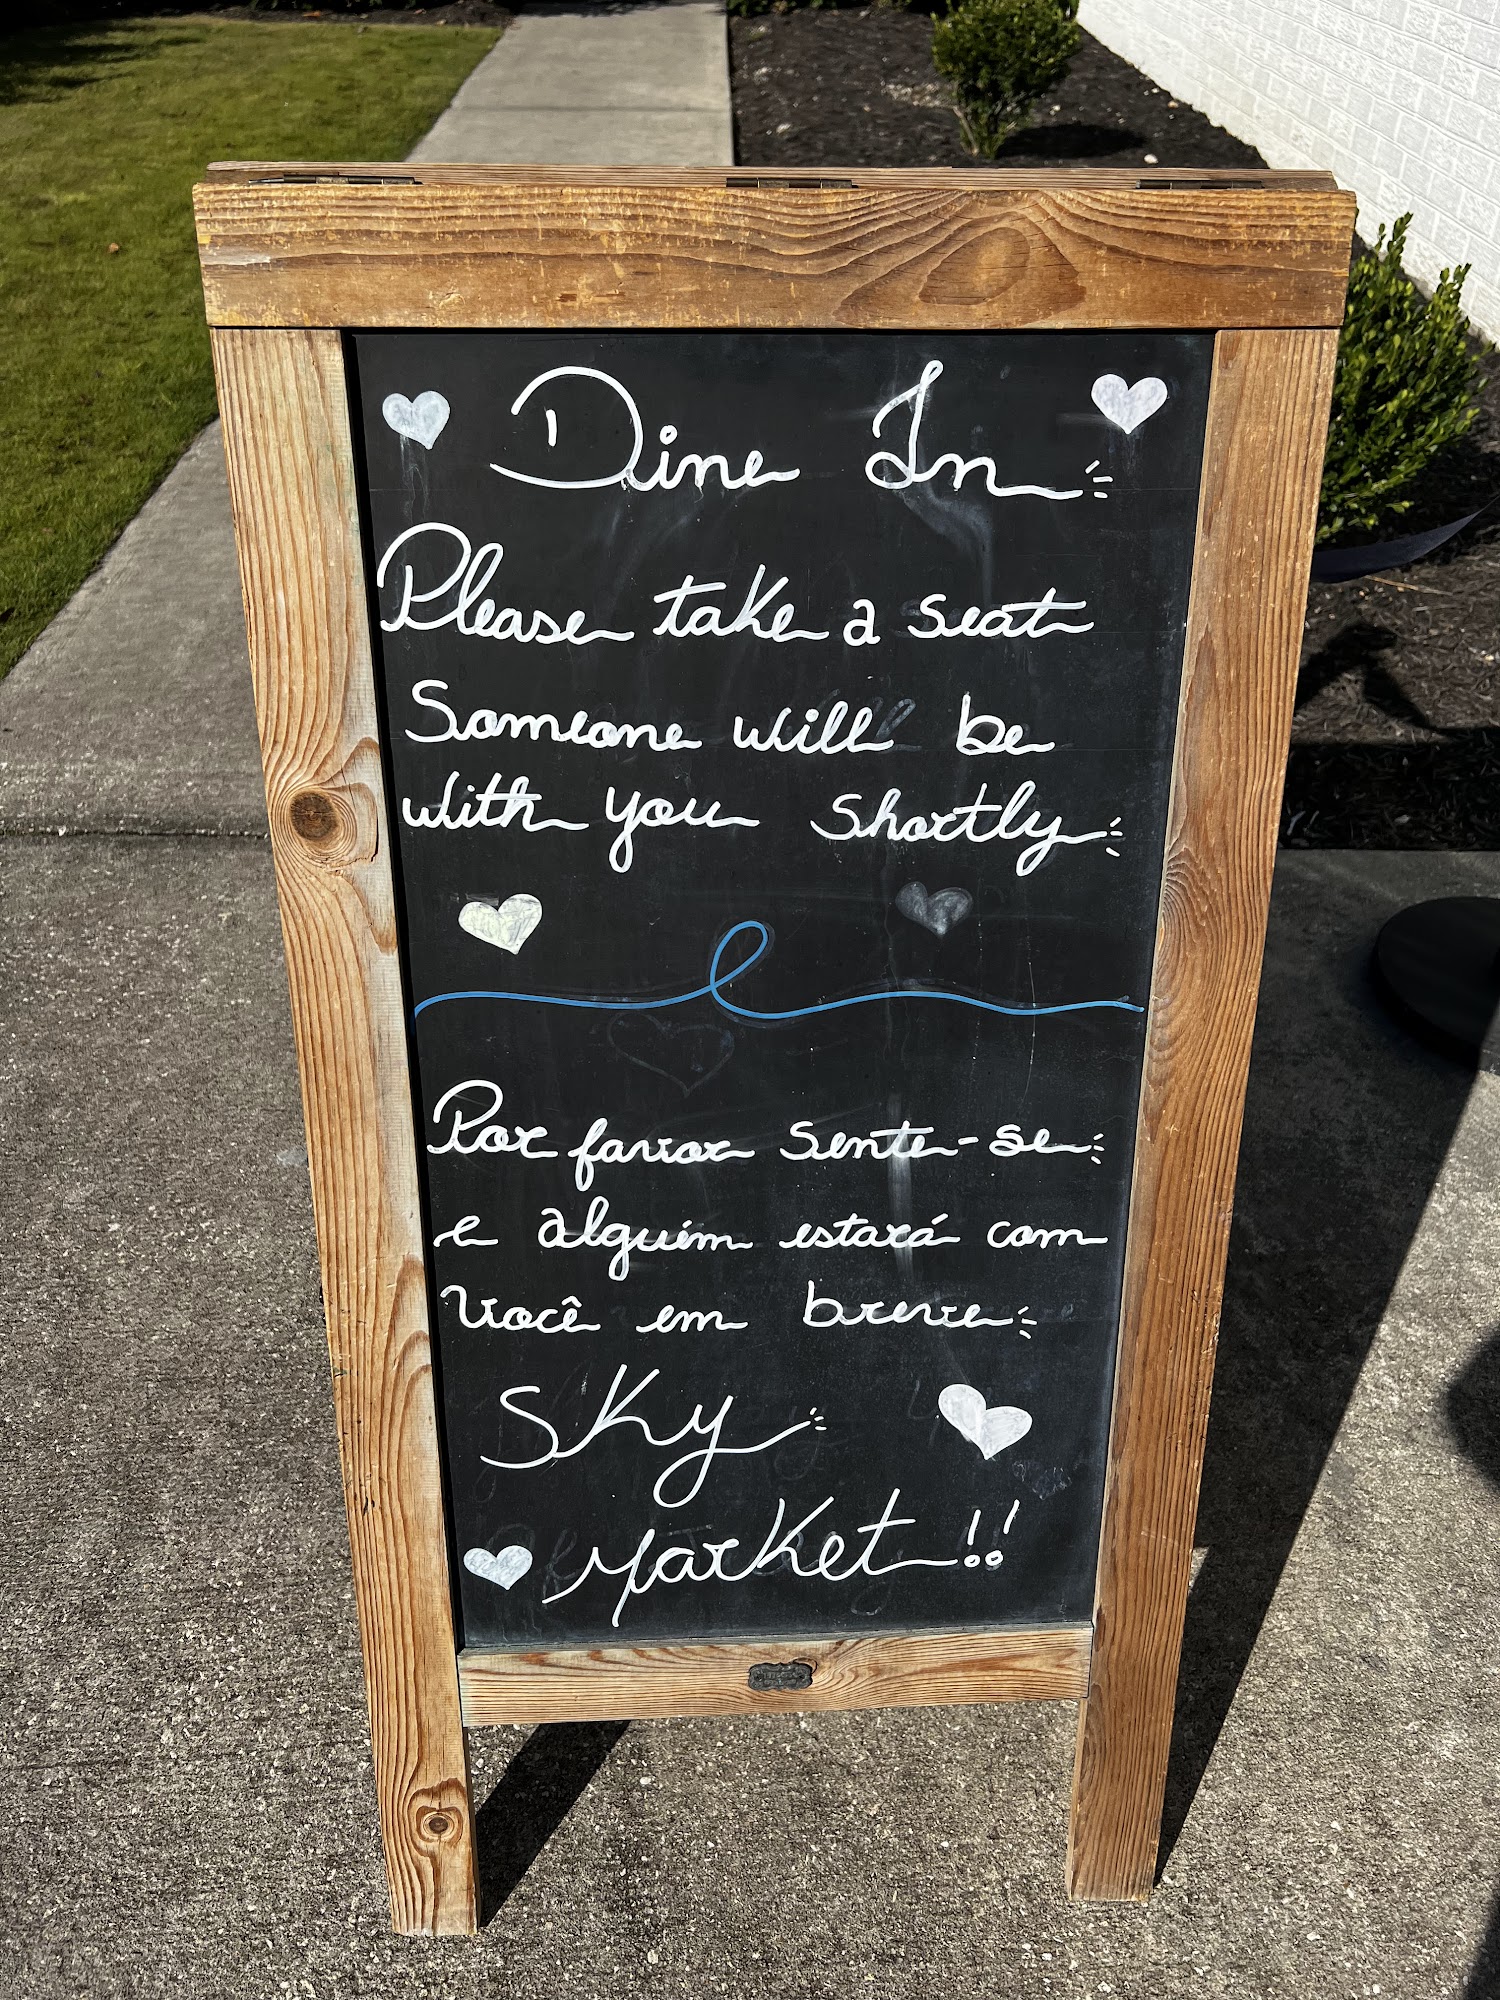 Dine In
Please take a seat
Someone will be
with you shortly
Por favor sente-se
e alguém estará com
você em breve
Sky
Market!!